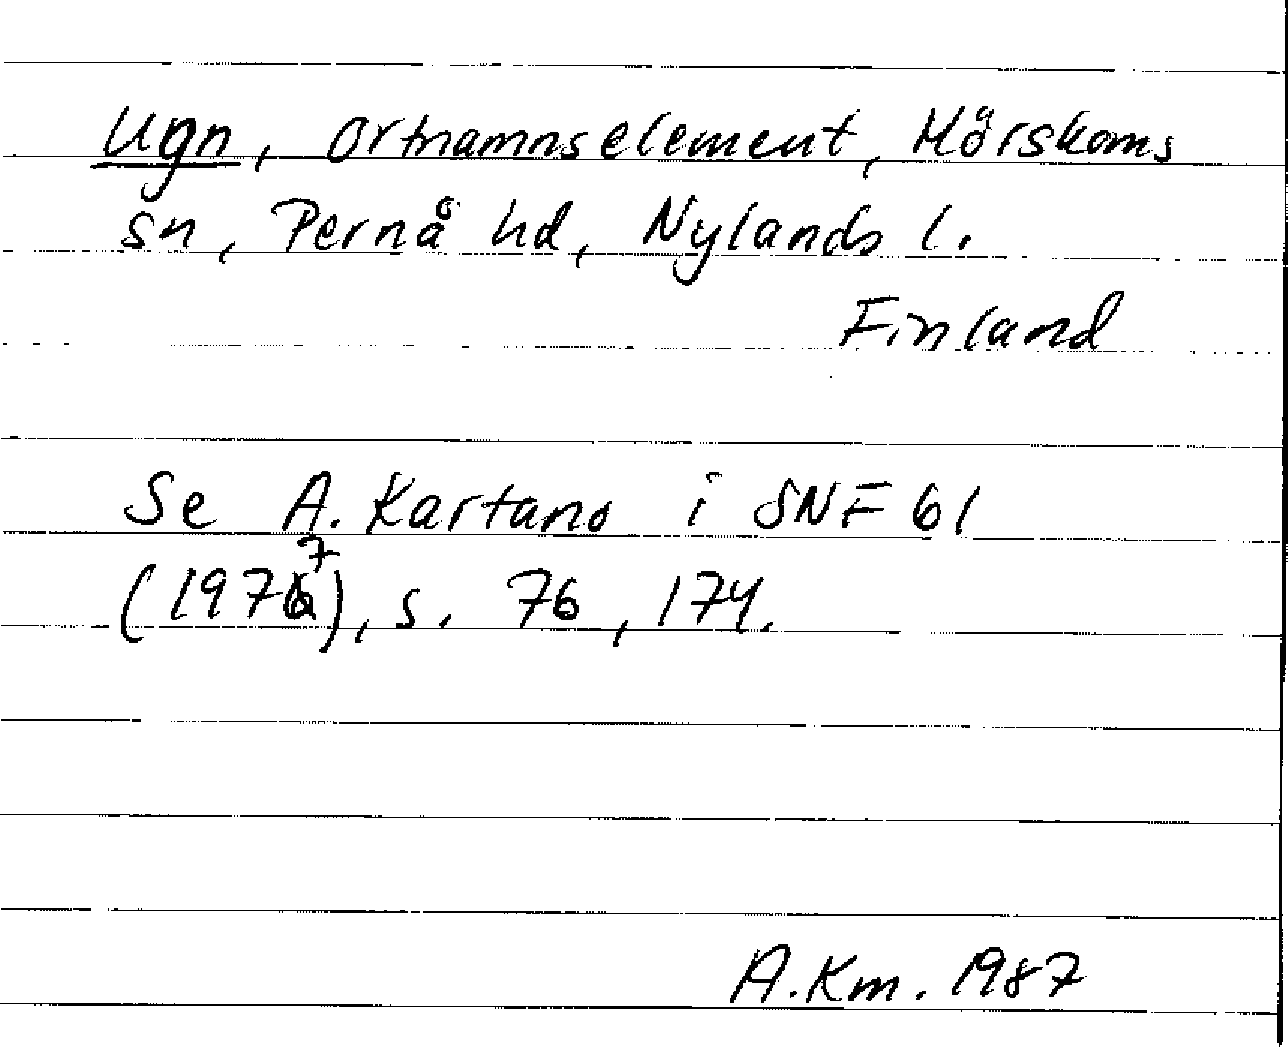 Ugn, ortnamnselement, Mörskoms
sn, Pernå hd, Nylands l.
Finland
Se A. Kartano i SNF 61
(1977), s. 76, 174.
A.Km. 1987